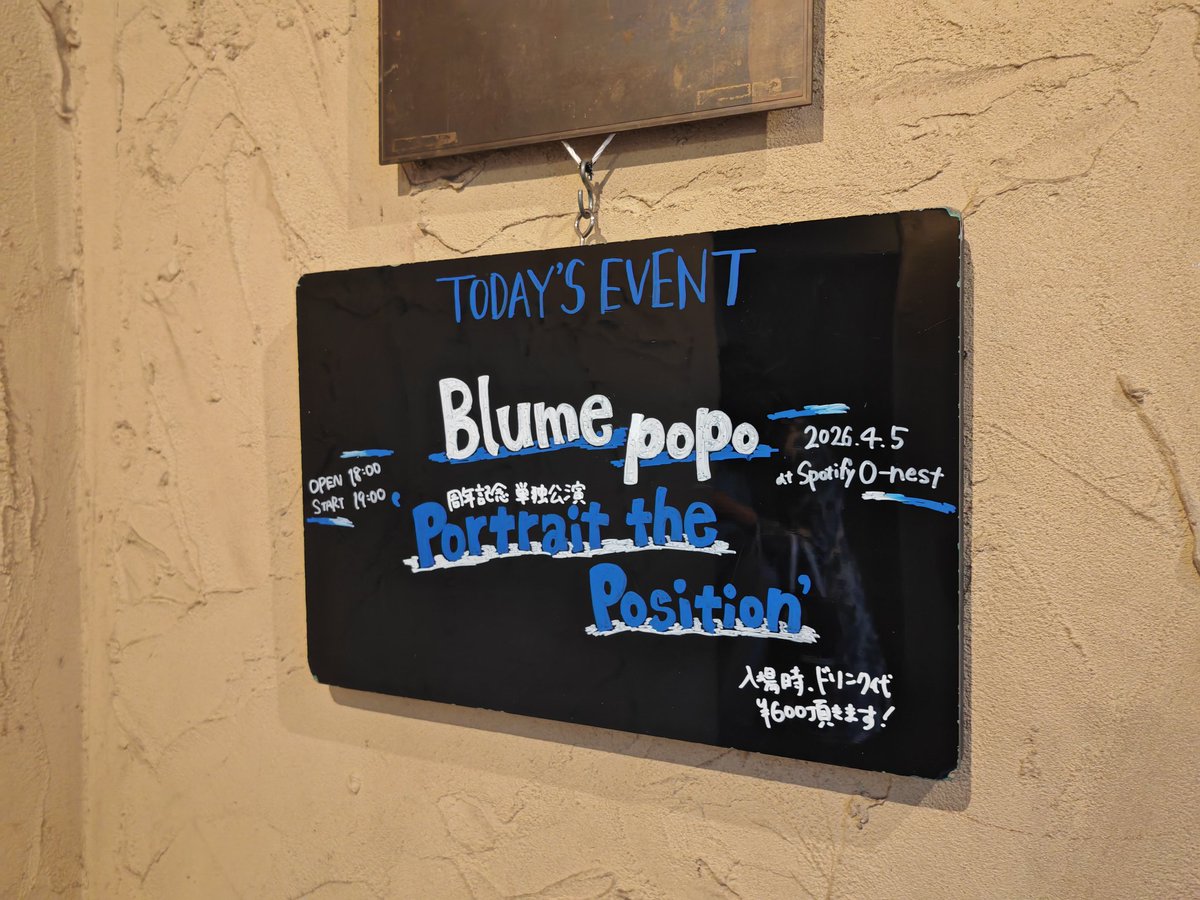 TODAY'S EVENT
Blume popo
2026.4.5
at Spotify O-nest
OPEN 18:00
START 19:00
周年記念 単独公演
‘Portrait the
Position’
入場時、ドリンク代
¥600頂きます!